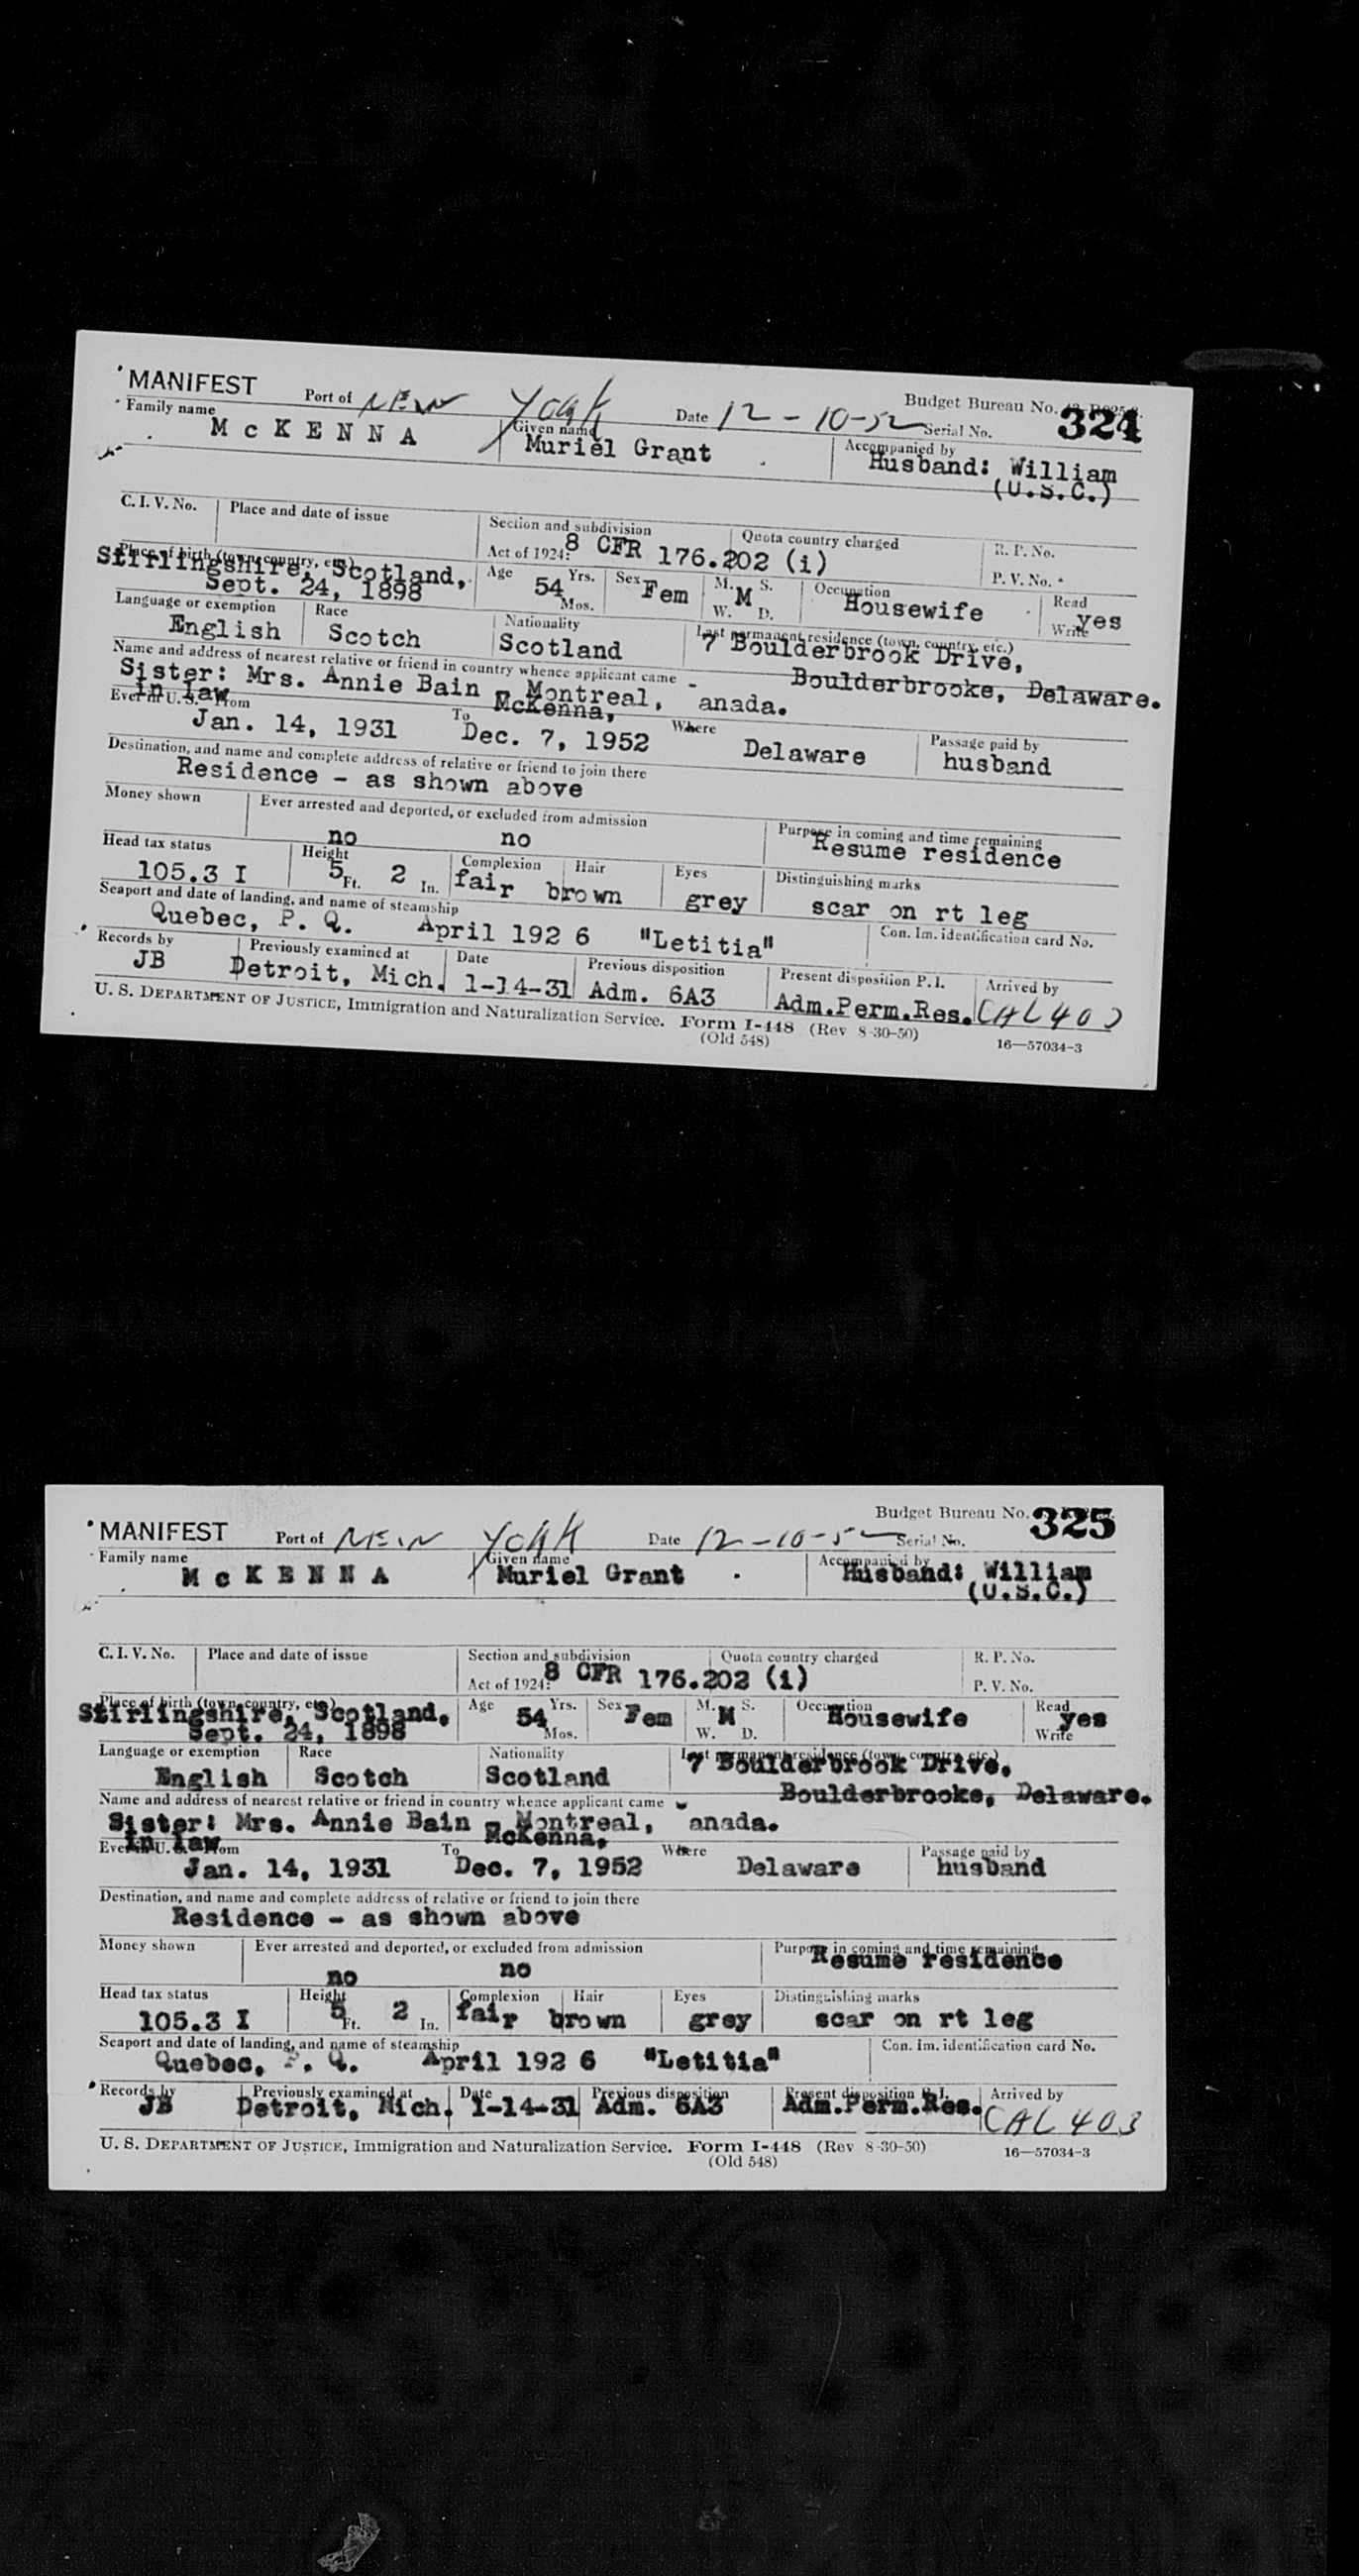 MANIFEST Port of NEW YORK Date 12-10-52 Budget Bureau No. Serial No. 324
Family name McKENNA Given name Muriel Grant Accompanied by Husband: William
(U.S.C.)
C. I. V. No. Place and date of issue Section and subdivision Quota country charged R. P. No.
Act of 1924: 8 CFR 176.202 (i) P. V. No.
Place of birth (town, country, etc.) Stirlingshire, Scotland, Age 54 Yrs. Sex Fem M. M S. Occupation Housewife Read yes
Sept. 24, 1898 Mos. W. D. Write
Language or exemption Race Nationality Last permanent residence (town, country, etc.)
English Scotch Scotland 7 Boulderbrook Drive,
Name and address of nearest relative or friend in country whence applicant came Boulderbrooke, Delaware.
Sister: Mrs. Annie Bain - Montreal, anada.
in law McKenna,
Ever in U. S. From To Where Passage paid by
Jan. 14, 1931 Dec. 7, 1952 Delaware husband
Destination, and name and complete address of relative or friend to join there
Residence - as shown above
Money shown Ever arrested and deported, or excluded from admission Purpose in coming and time remaining
no no Resume residence
Head tax status Height Complexion Hair Eyes Distinguishing marks
105.3 I 5 Ft. 2 In. fair brown grey scar on rt leg
Seaport and date of landing, and name of steamship Con. Im. identification card No.
Quebec, P. Q. April 192 6 "Letitia"
Records by Previously examined at Date Previous disposition Present disposition P. I. Arrived by
JB Detroit, Mich. 1-14-31 Adm. 6A3 Adm.Perm.Res. CAL 403
U. S. DEPARTMENT OF JUSTICE, Immigration and Naturalization Service. Form I-448 (Rev 8-30-50)
(Old 548) 16—57034-3
MANIFEST Port of NEW YORK Date 12-10-52 Budget Bureau No. Serial No. 325
Family name McKENNA Given name Muriel Grant Accompanied by Husband: William
(U.S.C.)
C. I. V. No. Place and date of issue Section and subdivision Quota country charged R. P. No.
Act of 1924: 8 CFR 176.202 (i) P. V. No.
Place of birth (town, country, etc.) Stirlingshire, Scotland, Age 54 Yrs. Sex Fem M. M S. Occupation Housewife Read yes
Sept. 24, 1898 Mos. W. D. Write
Language or exemption Race Nationality Last permanent residence (town, country, etc.)
English Scotch Scotland 7 Boulderbrook Drive,
Name and address of nearest relative or friend in country whence applicant came Boulderbrooke, Delaware.
Sister: Mrs. Annie Bain - Montreal, anada.
in law McKenna,
Ever in U. S. From To Where Passage paid by
Jan. 14, 1931 Dec. 7, 1952 Delaware husband
Destination, and name and complete address of relative or friend to join there
Residence - as shown above
Money shown Ever arrested and deported, or excluded from admission Purpose in coming and time remaining
no no Resume residence
Head tax status Height Complexion Hair Eyes Distinguishing marks
105.3 I 5 Ft. 2 In. fair brown grey scar on rt leg
Seaport and date of landing, and name of steamship Con. Im. identification card No.
Quebec, P. Q. April 192 6 "Letitia"
Records by Previously examined at Date Previous disposition Present disposition P. I. Arrived by
JB Detroit, Mich. 1-14-31 Adm. 6A3 Adm.Perm.Res. CAL 403
U. S. DEPARTMENT OF JUSTICE, Immigration and Naturalization Service. Form I-448 (Rev 8-30-50)
(Old 548) 16—57034-3